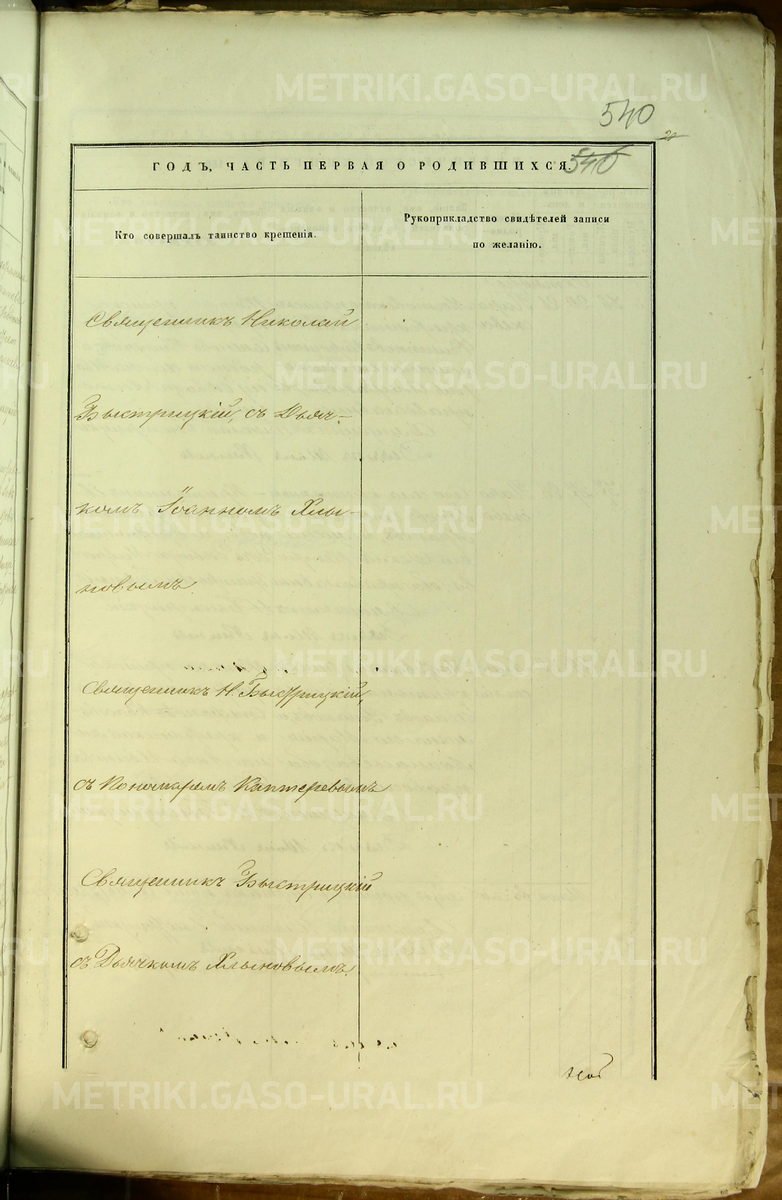 METRIKI.GASO-URAL.RU
540
540
ГОДЪ, ЧАСТЬ ПЕРВАЯ О РОДИВШИХСЯ.
Кто совершалъ таинство крещенія.
Рукоприкладство свидѣтелей записи
по желанію.
Священникъ Николай
Быстрицкій, съ Дьяч-
комъ Іоанномъ Хлы-
новымъ.
Священникъ Н. Быстрицкій,
съ Пономаремъ Каптеревымъ
Священникъ Быстрицкій
съ Дьячкомъ Хлыновымъ.